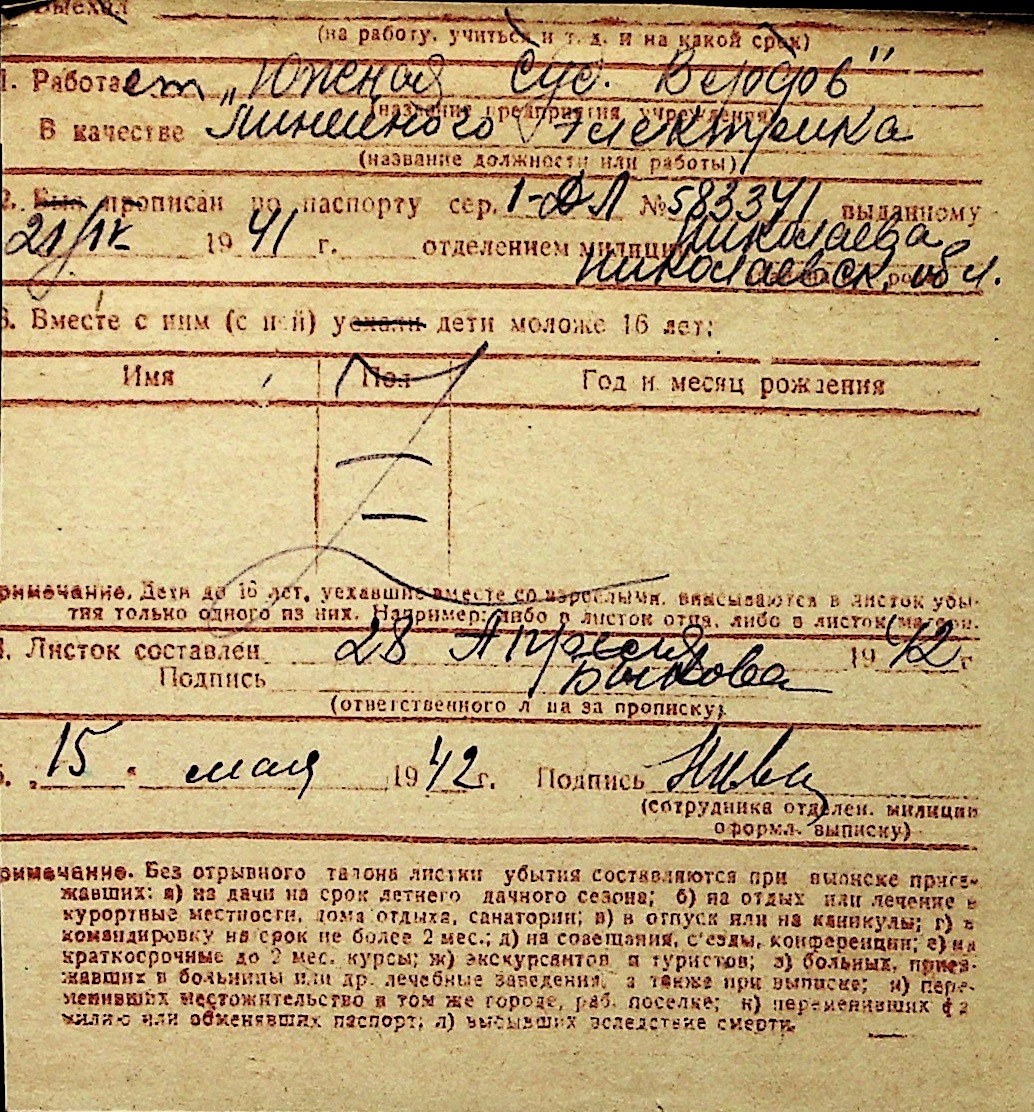 Выехал
(на работу, учиться и т. д. и на какой срок)
1. Работает „Южная Суд. Верфь"
(название предприятия, учреждения)
В качестве Линейного Электрика
(название должности или работы)
2. Был прописан по паспорту сер. 1-ДЛ № 583341 выданному
21/IV 1941 г. отделением милиции Николаева
Николаевск. обл.
3. Вместе с ним (с ней) уехали дети моложе 16 лет:
Имя Пол Год и месяц рождения
римечание. Дети до 16 лет, уехавшие вместе со взрослыми, вписываются в листок убы-
тия только одного из них. Например: либо в листок отца, либо в листок матери.
4. Листок составлен 28 Апреля 1942 г
Подпись Быкова
(ответственного лица за прописку)
5. „15" мая 1942 г. Подпись
(сотрудника отделен. милиции
оформл. выписку)
римечание. Без отрывного талона листки убытия составляются при выписке приез-
жавших: а) на дачи на срок летнего дачного сезона; б) на отдых или лечение в
курортные местности, дома отдыха, санатории; в) в отпуск или на каникулы; г) в
командировку на срок не более 2 мес.; д) на совещания, с'езды, конференции; е) на
краткосрочные до 2 мес. курсы; ж) экскурсантов и туристов; з) больных, приез-
жавших в больницы или др. лечебные заведения, а также при выписке; и) пере-
менивших местожительство в том же городе, раб. поселке; к) переменивших фа
милию или обменявших паспорт; л) выбывших вследствие смерти.